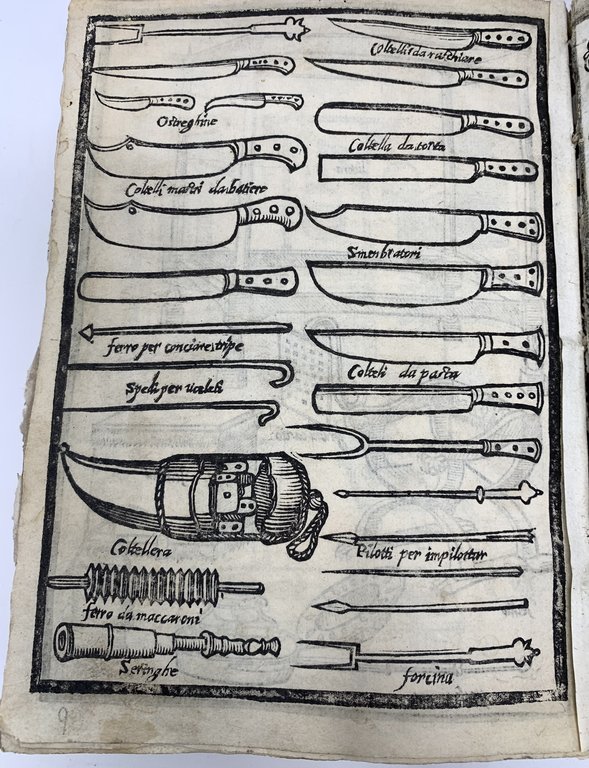 Coltelli da raschiare
Ostreghine
Coltella da torta
Coltelli mastri da batiere
Smenbratori
ferro per conciarestripe
Colteli da pasta
Spedi per ucaleti
Coltellera
Pilotti per impilottar
ferro da maccaroni
Siringhe
forcina
9